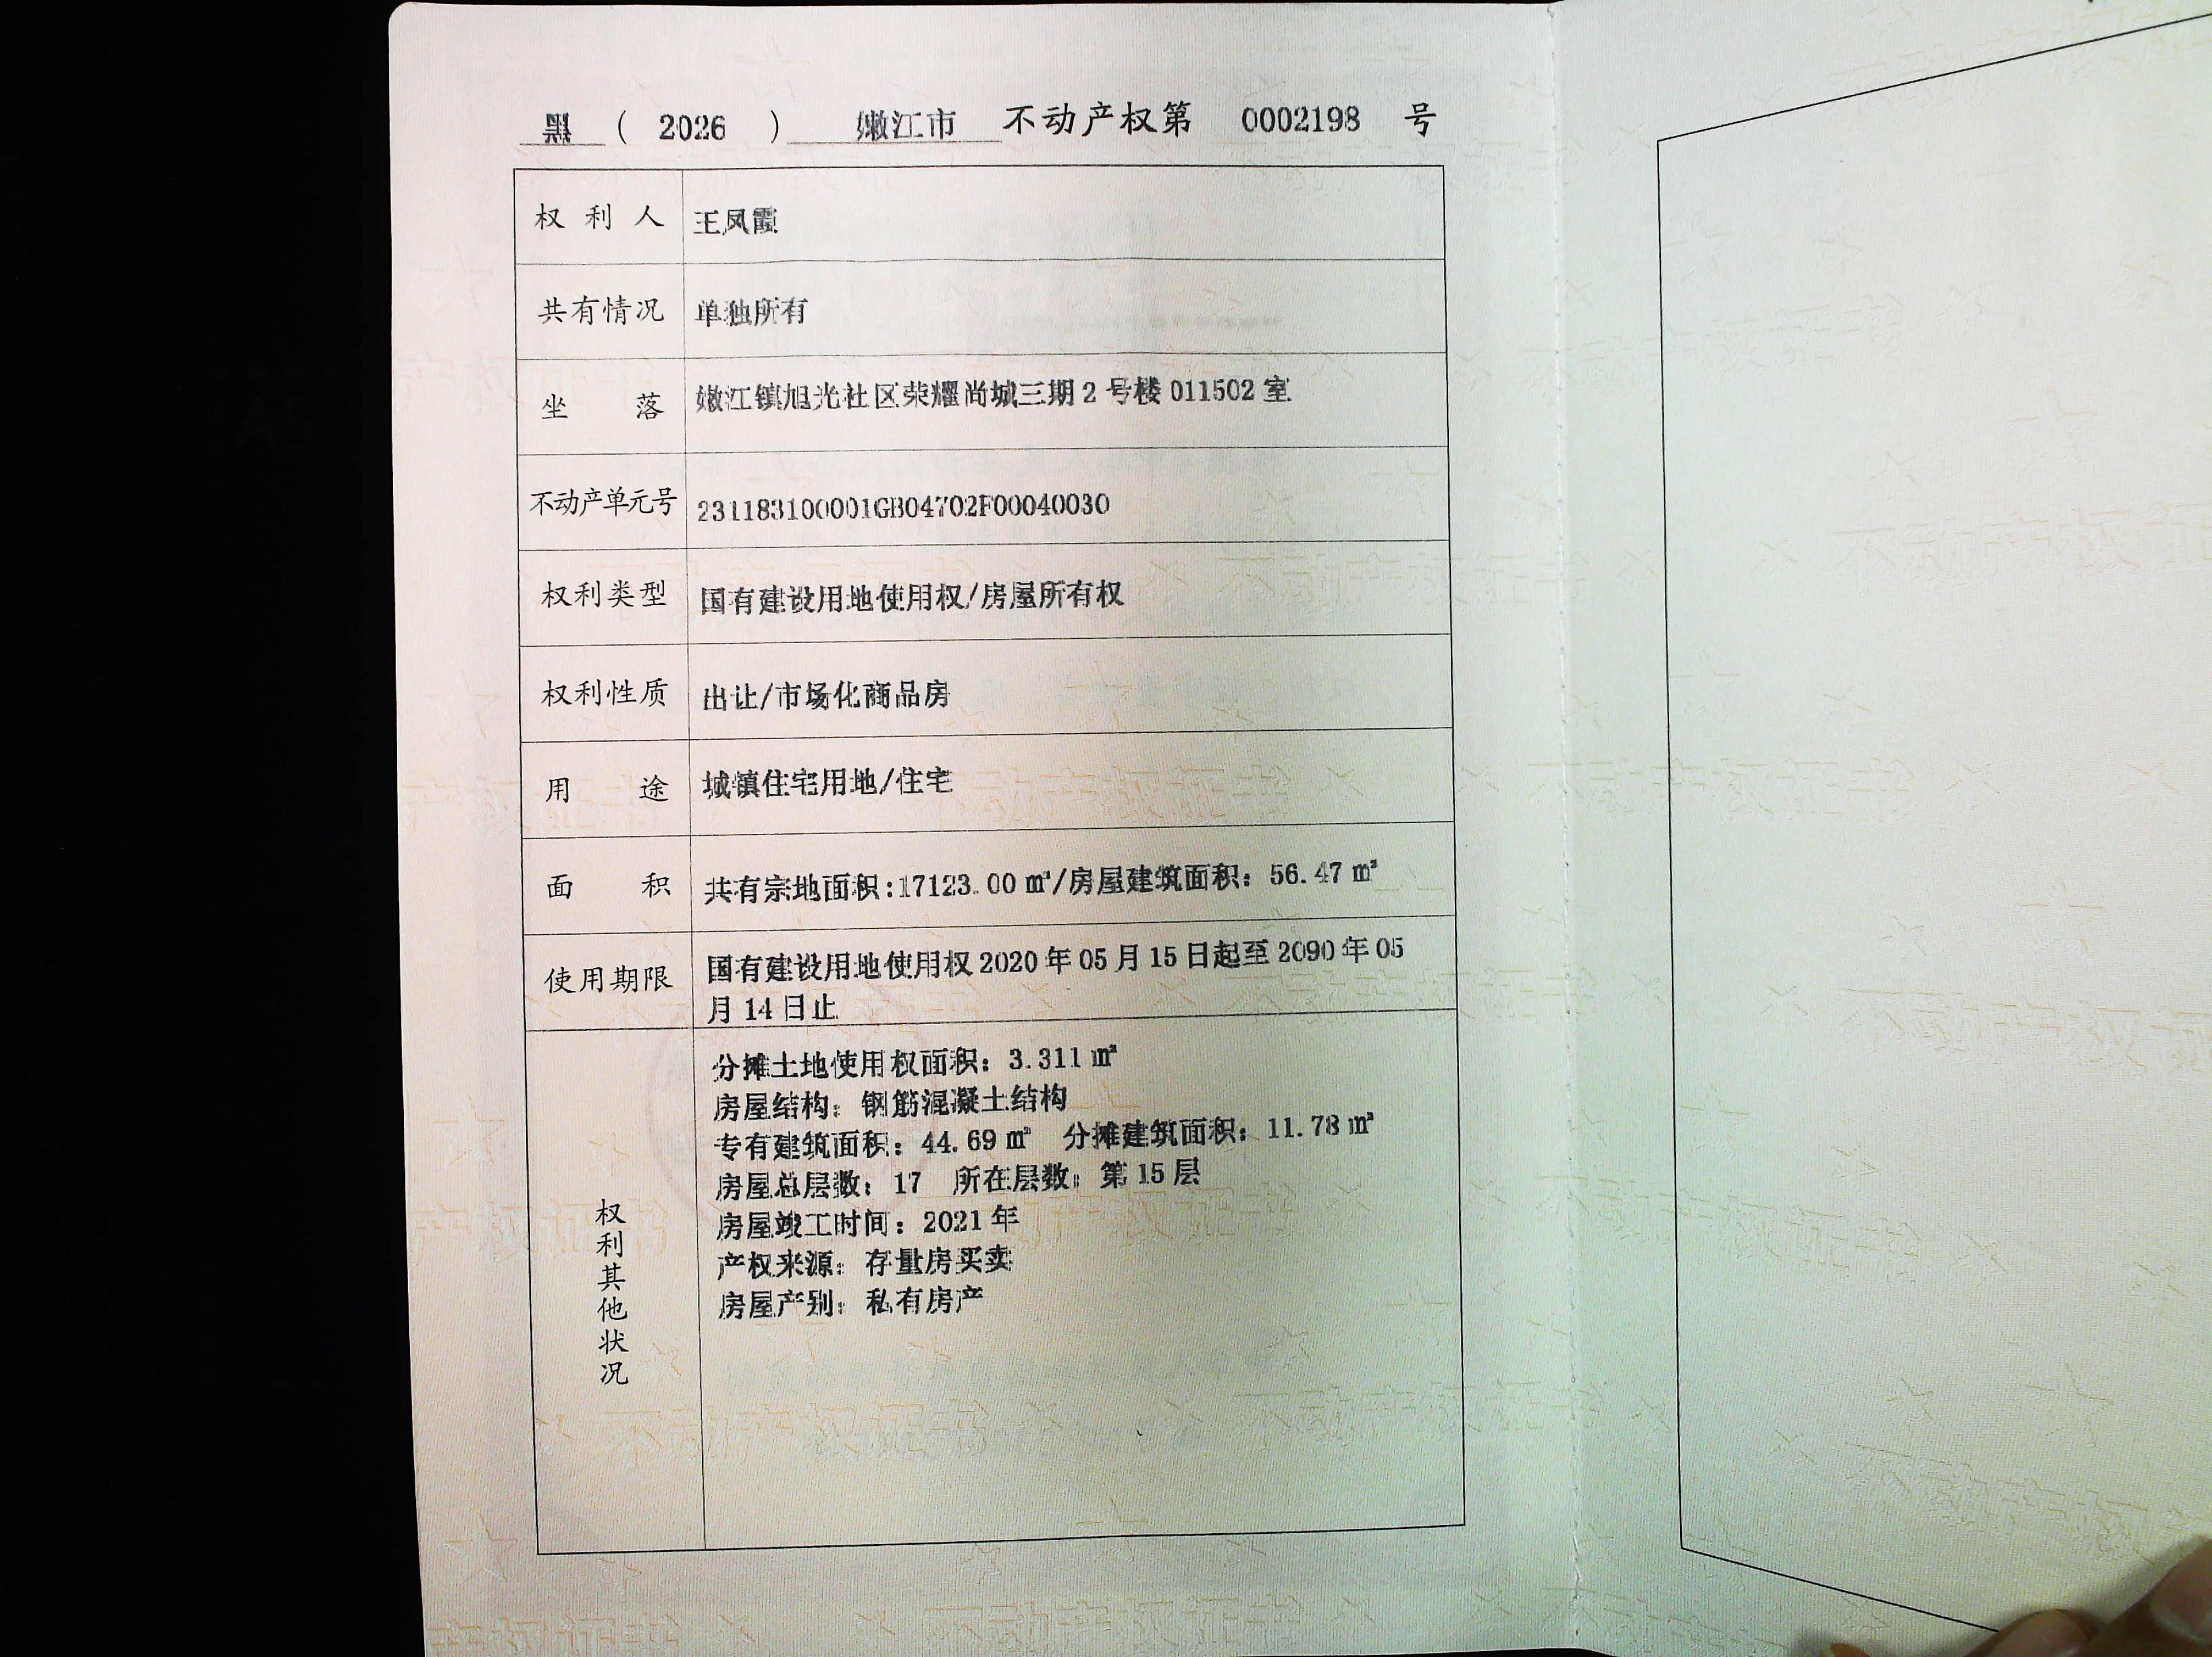 黑 ( 2026 ) 嫩江市 不动产权第 0002198 号
权利人 王凤霞
共有情况 单独所有
坐落 嫩江镇旭光社区荣耀尚城三期2号楼011502室
不动产单元号 231183100001GB04702F00040030
权利类型 国有建设用地使用权/房屋所有权
权利性质 出让/市场化商品房
用途 城镇住宅用地/住宅
面积 共有宗地面积:17123.00㎡/房屋建筑面积：56.47㎡
使用期限 国有建设用地使用权2020年05月15日起至2090年05
月14日止
权利其他状况
分摊土地使用权面积：3.311㎡
房屋结构：钢筋混凝土结构
专有建筑面积：44.69㎡ 分摊建筑面积：11.78㎡
房屋总层数：17 所在层数：第15层
房屋竣工时间：2021年
产权来源：存量房买卖
房屋产别：私有房产